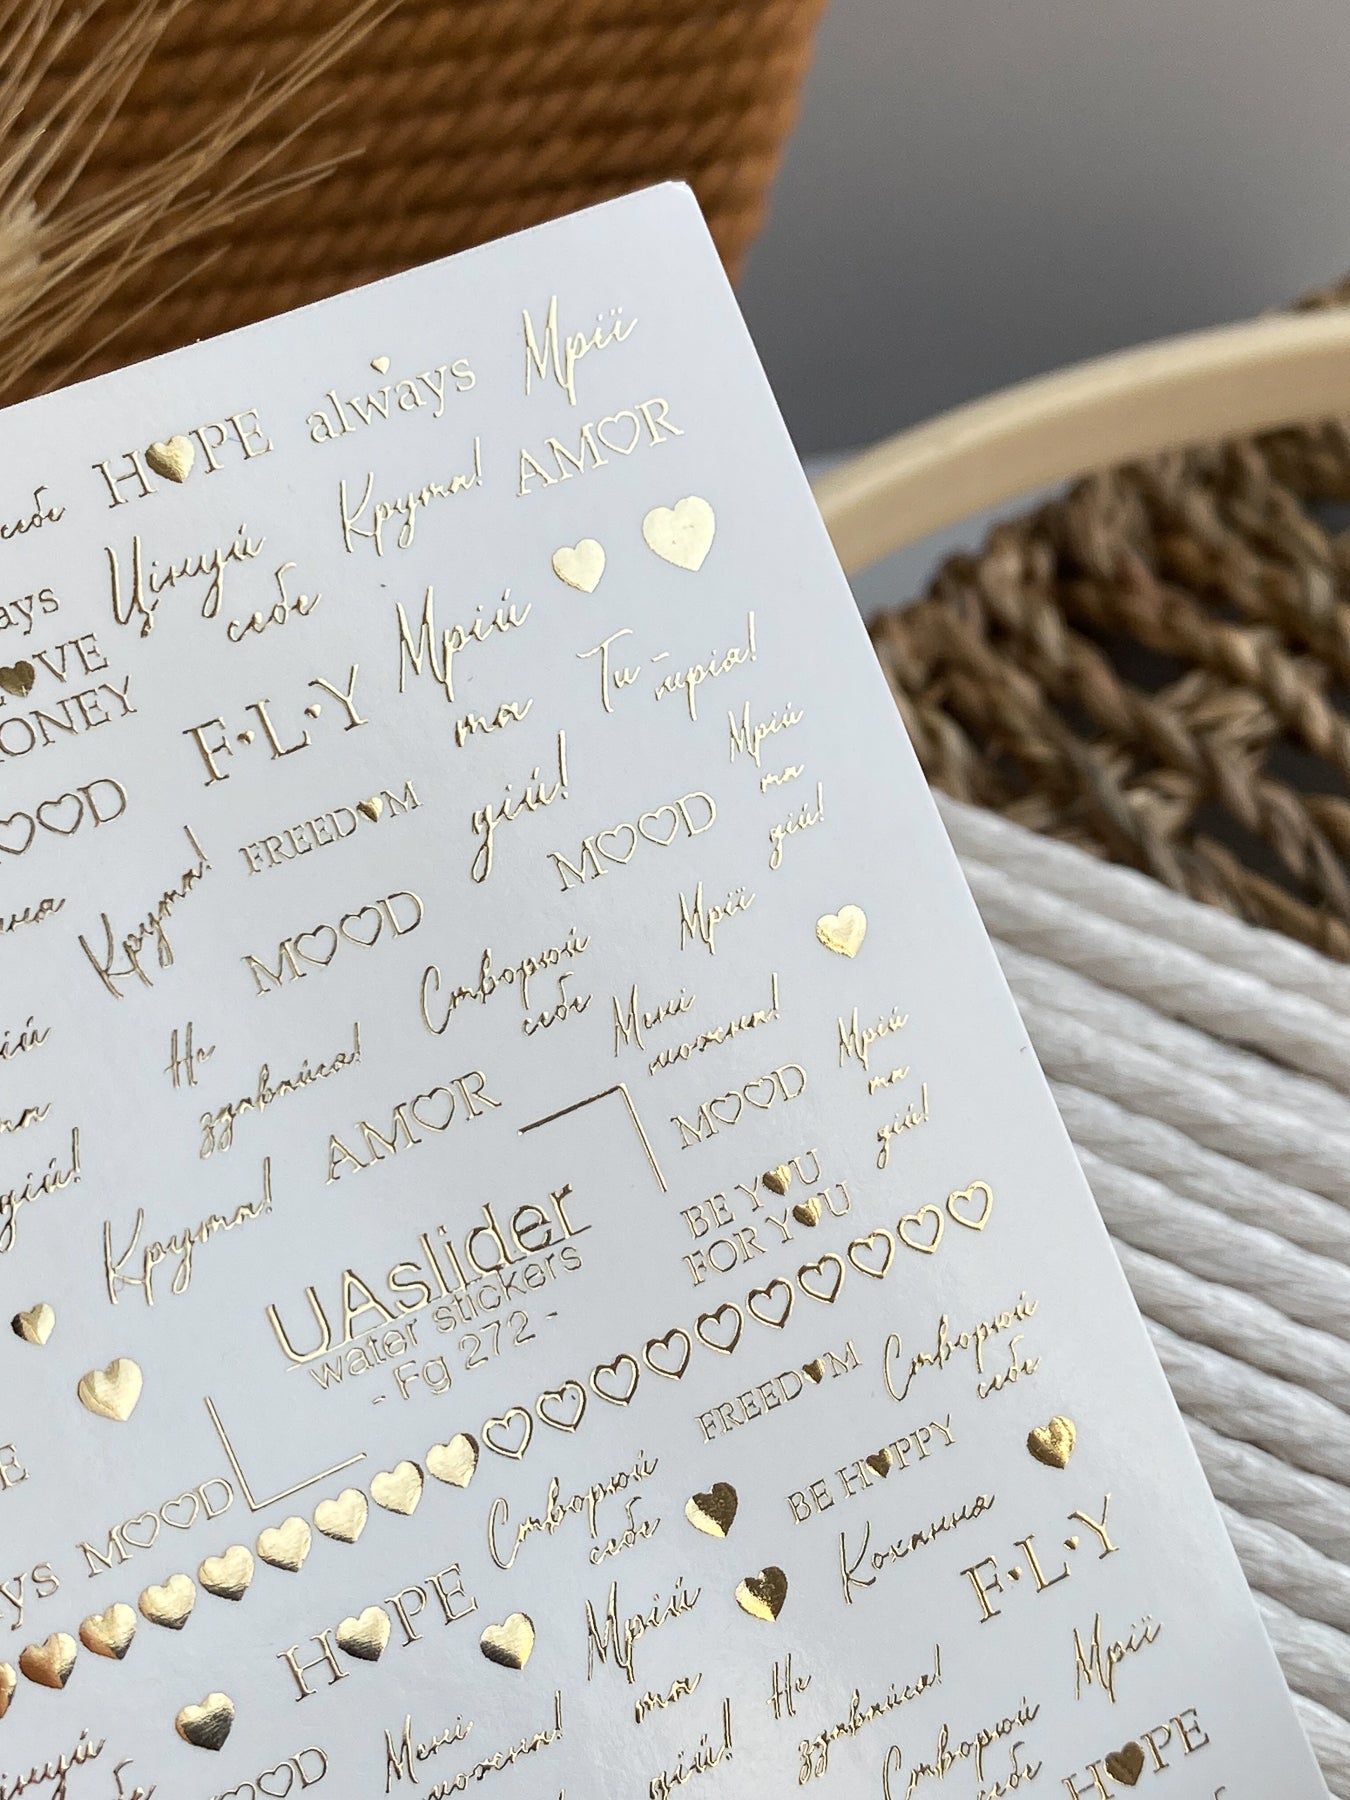 себе HOPE always Мрії
Цінуй себе Крута! AMOR
ays
LOVE
ONEY
F·L·Y Мрій та дій! Ти - мрія!
MOOD
Крута! FREEDOM
MOOD MOOD Мрій та дій!
Не здавайся! Створюй себе Мрії
Мені можна!
AMOR MOOD Мрій та дій!
Крута!
BE YOU
FOR YOU
UAslider
water stickers
- Fg 272 -
FREEDOM Створюй себе
MOOD Створюй себе BE HAPPY
ys HOPE Мрій та дій! Кохання F·L·Y
Цінуй MOOD Мені можна! Не здавайся! Створюй себе Мрії
HOPE